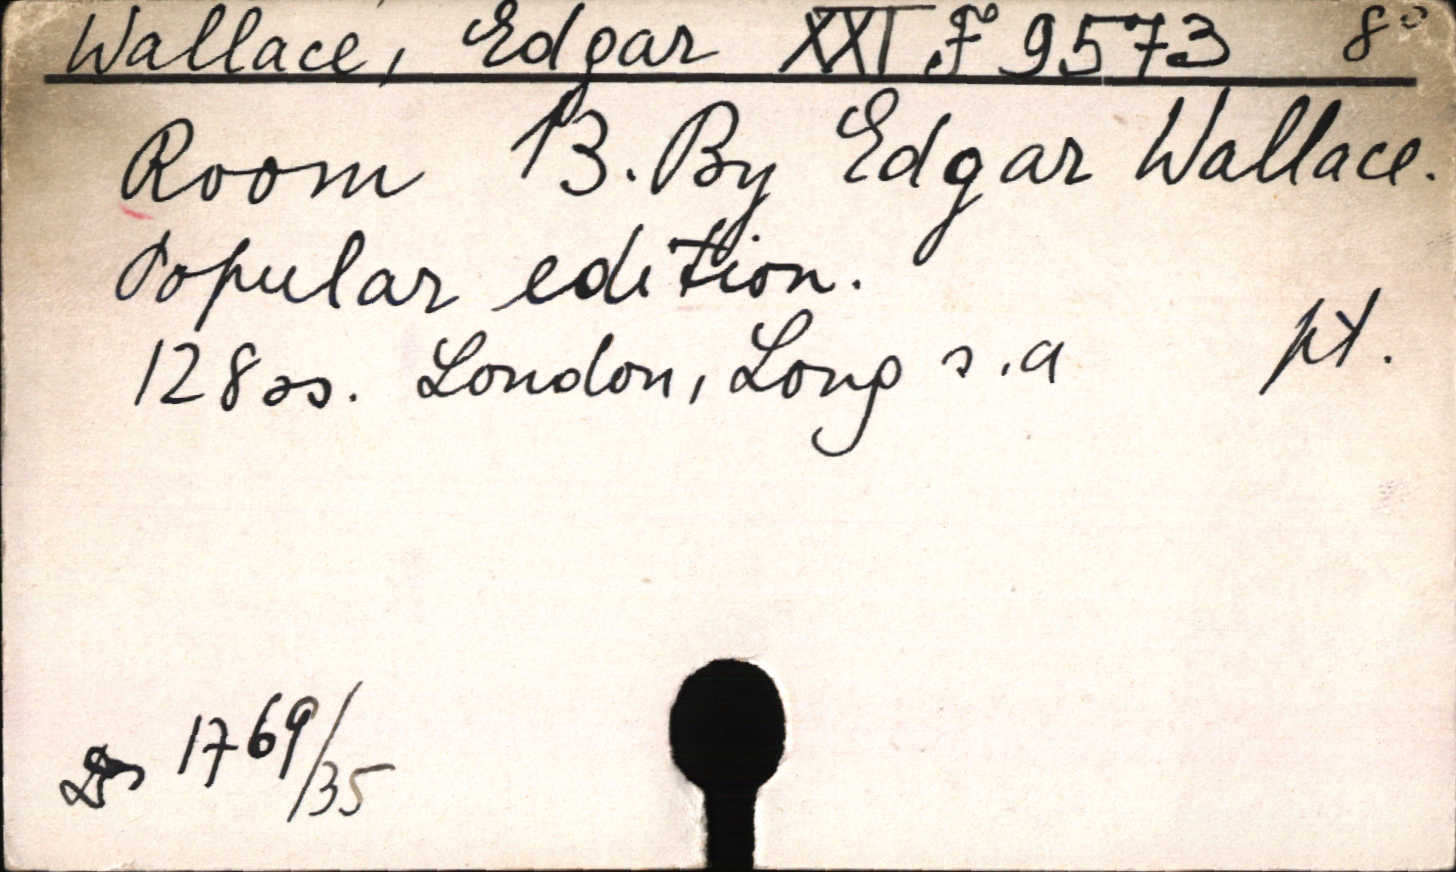 Wallace, Edgar XXI F 9573 8°
Room 13. By Edgar Wallace.
Popular edition.
128 ss. London, Long s.a pt.
1769/35